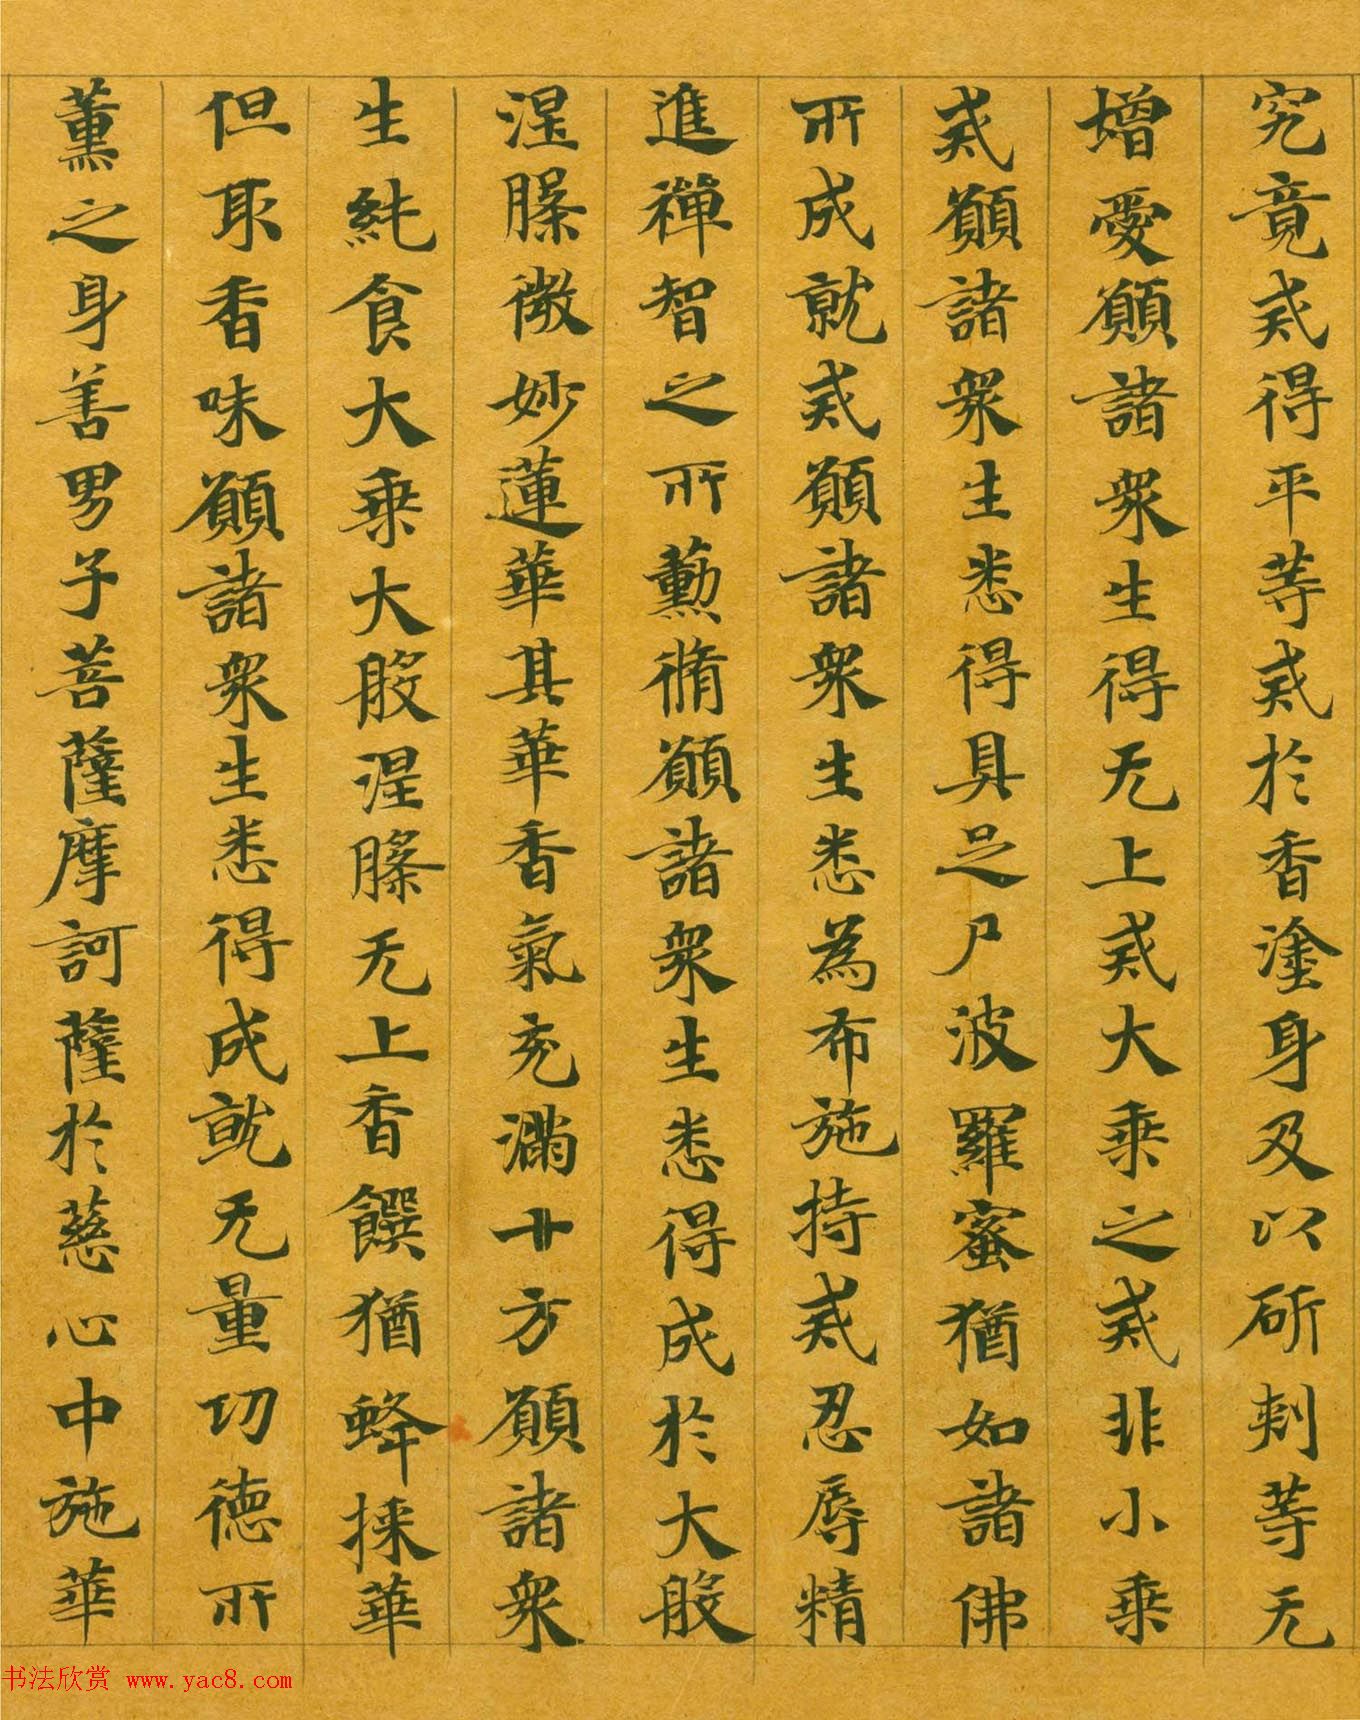 究竟戒得平等戒於香塗身及以斫刺等无
增愛願諸衆生得无上戒大乗之戒非小乗
戒願諸衆生悉得具足尸波羅蜜猶如諸佛
所成就戒願諸衆生悉為布施持戒忍辱精
進禪智之所勳脩願諸衆生悉得成於大般
涅槃微妙蓮華其華香氣充滿十方願諸衆
生純食大乗大般涅槃无上香饌猶蜂採華
但取香味願諸衆生悉得成就无量功德所
薰之身善男子菩薩摩訶薩於慈心中施華
书法欣赏 www.yac8.com